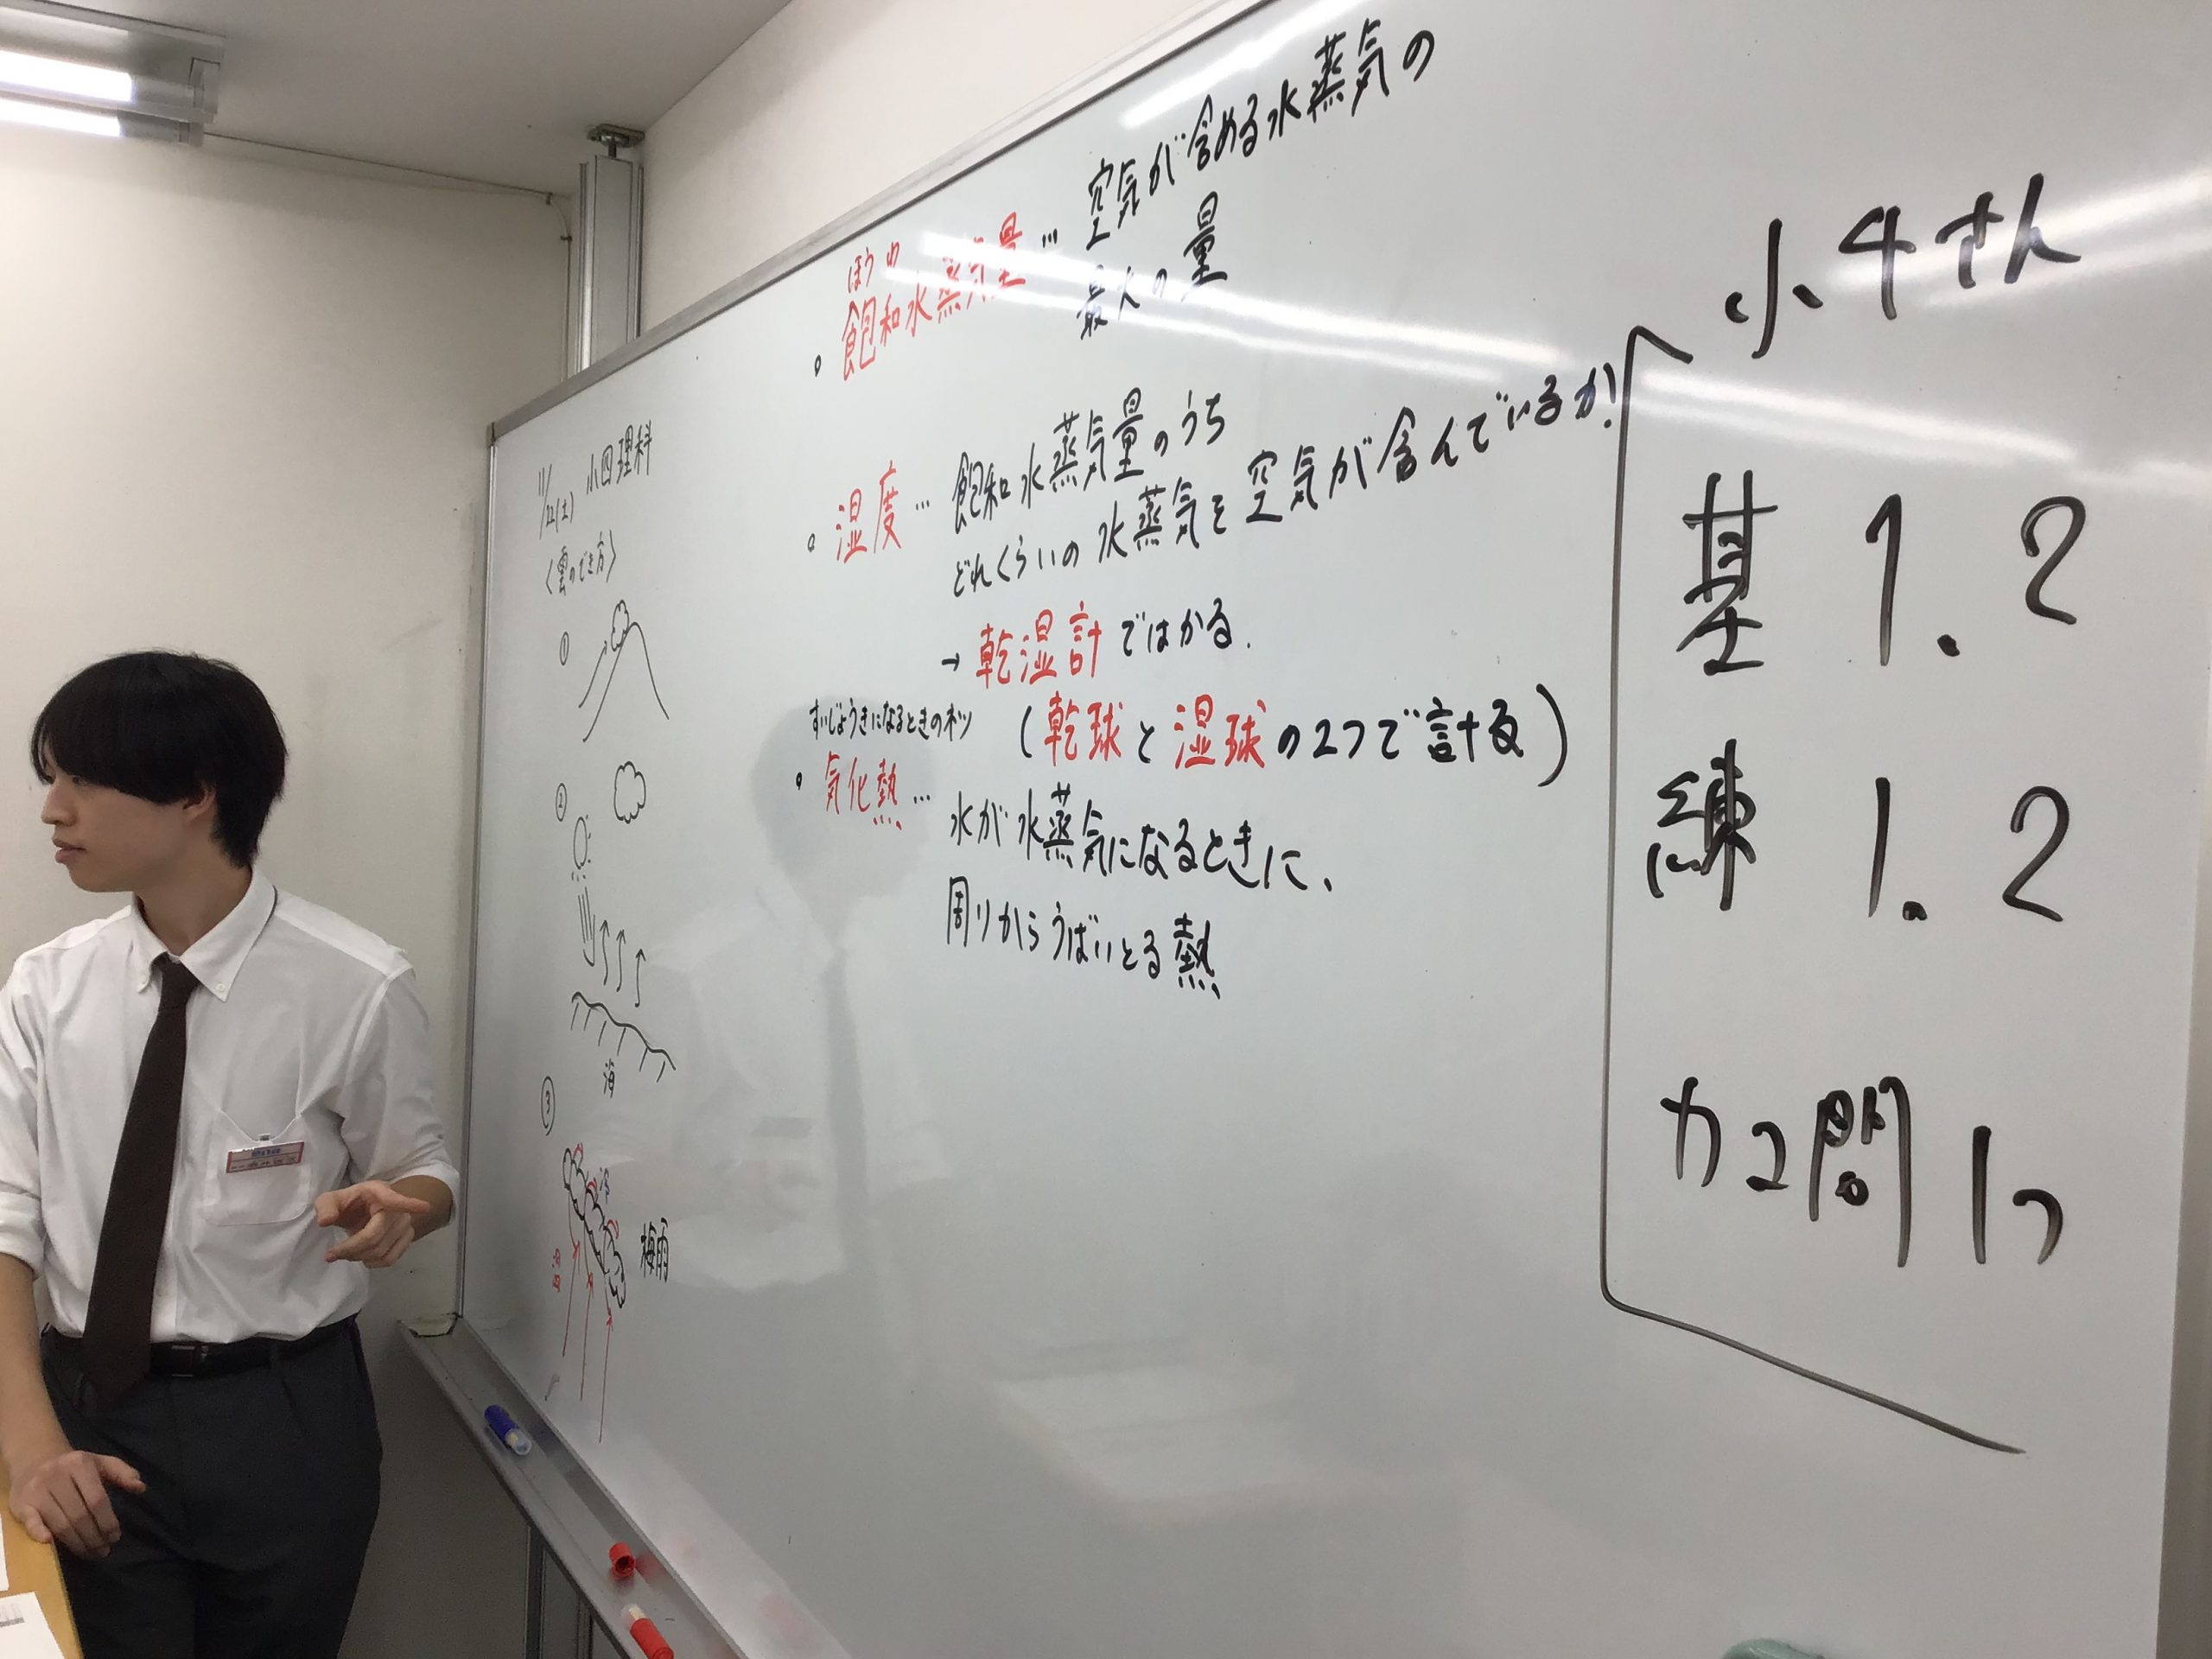 11/22(土) 小四理科
〈雲のでき方〉
①
②
海
③
冷
梅雨
ほうわ
。飽和水蒸気量… 空気が含める水蒸気の
最大の量
。湿度… 飽和水蒸気量のうち
どれくらいの水蒸気を空気が含んでいるか!
→乾湿計ではかる.
(乾球と湿球の2つで計る)
すいじょうきになるときのネツ
。気化熱… 水が水蒸気になるときに、
周りからうばいとる熱
小4さん
基 1. 2
練 1. 2
カコ問 1つ